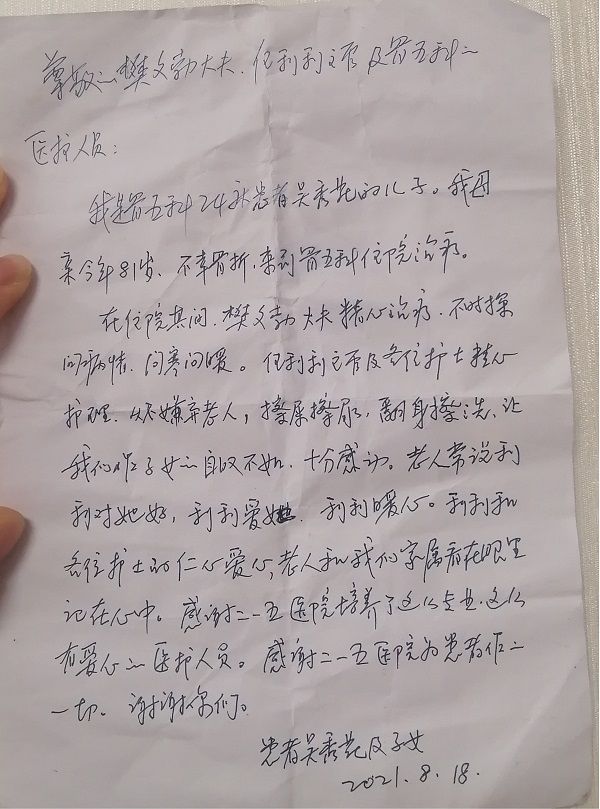 尊敬的樊文勃大夫、任利利主管及骨五科的
医护人员：
我是骨五科24床患者吴秀花的儿子。我母
亲今年81岁、不幸骨折，来到骨五科住院治疗。
在住院其间、樊文勃大夫精心治疗、不时探
问病情、问寒问暖。任利利主管及各位护士精心
护理、从不嫌弃老人，擦屎擦尿，翻身擦洗、让
我们做子女的自叹不如、十分感动。老人常说利
利对她好，利利爱她、利利暖心。利利和
各位护士的仁心爱心，老人和我们家属看在眼里
记在心中。感谢二一五医院培养了这么专业、这么
有爱心的医护人员。感谢二一五医院为患者作的
一切。谢谢你们。
患者吴秀花及子女
2021.8.18.